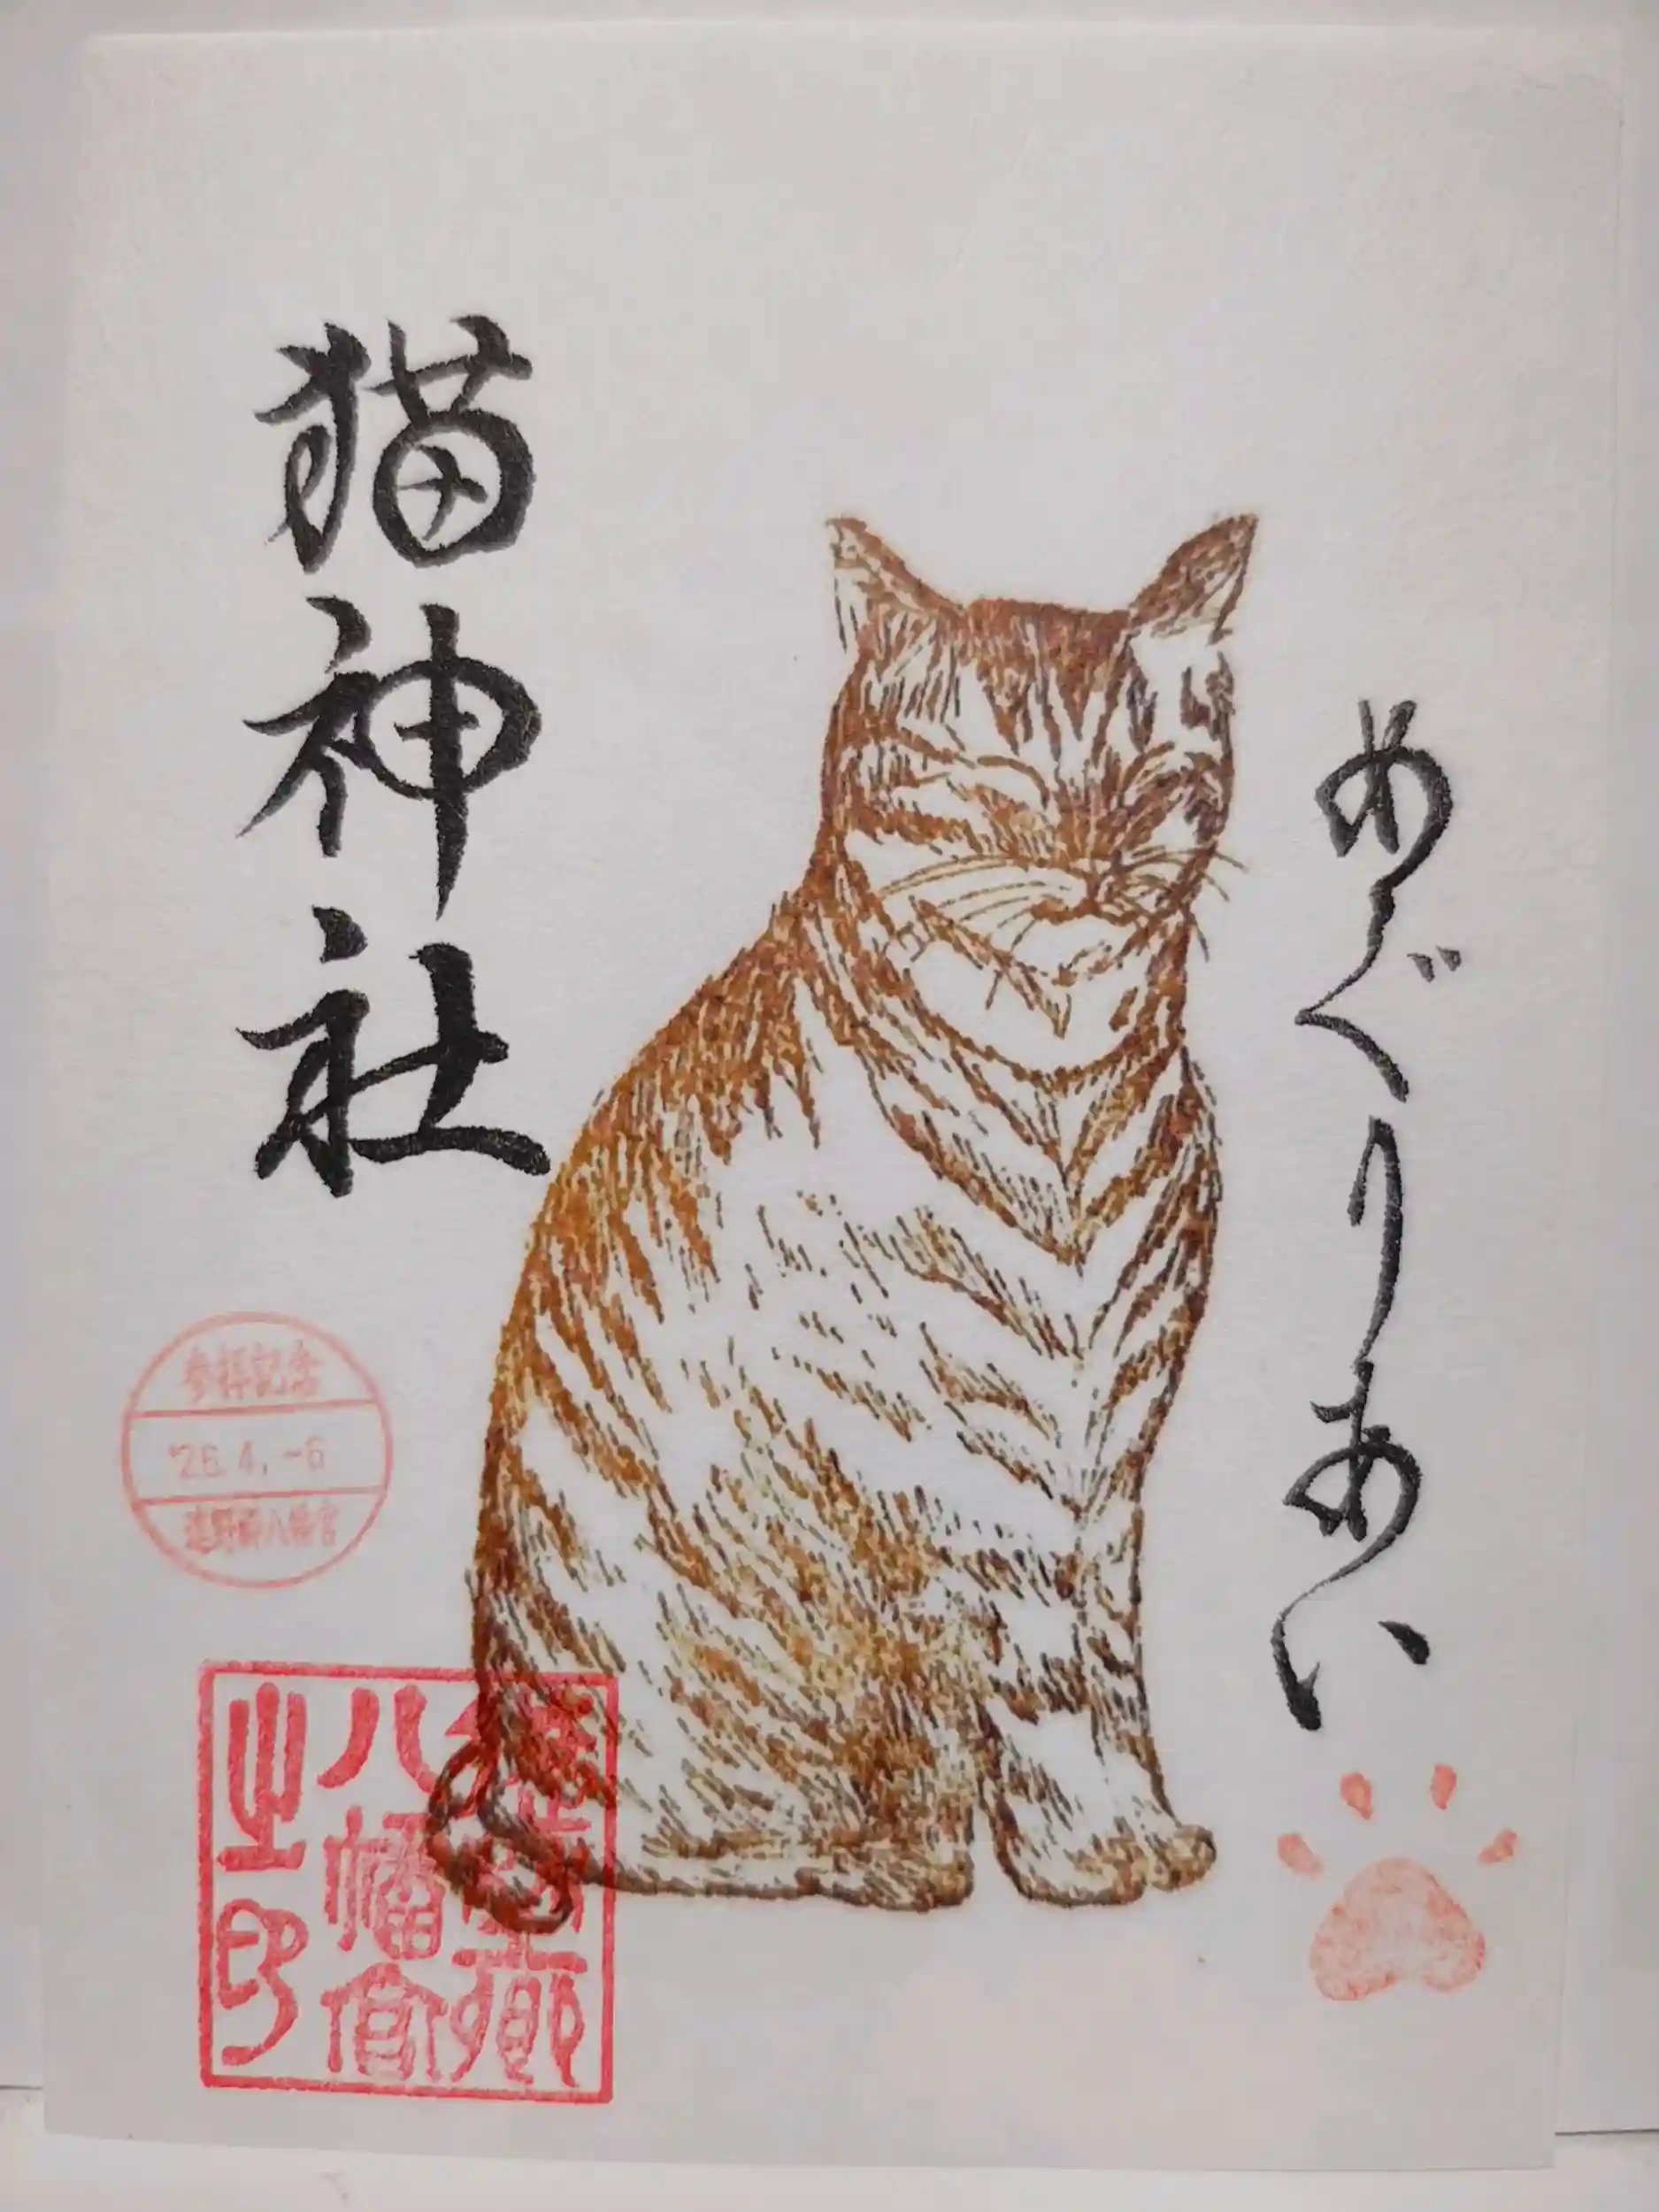 めぐりあい
猫神社
参拝記念
'26.4.-6
遠野郷八幡宮
遠野郷
八幡宮
之印